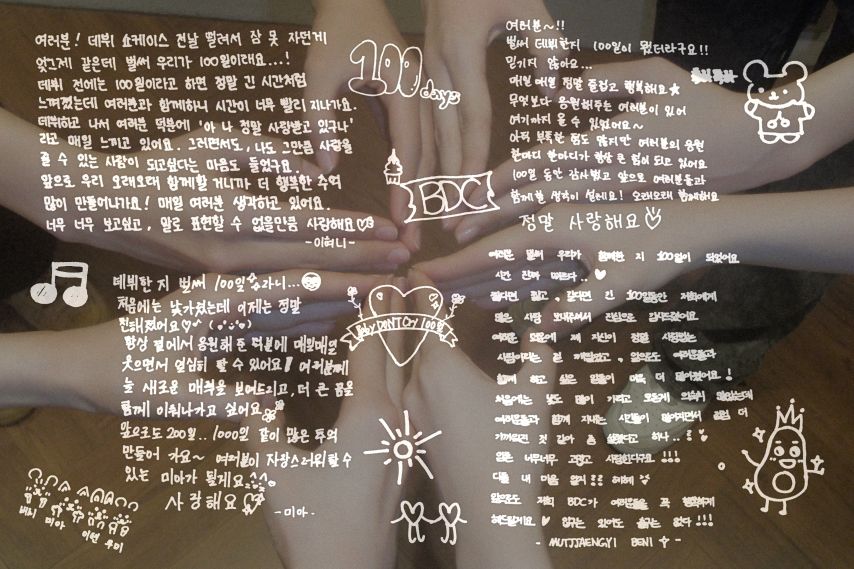 여러분! 데뷔 쇼케이스 전날 떨려서 잠 못 자던게
엊그제 같은데 벌써 우리가 100일이래요...!
데뷔 전에는 100일이라고 하면 정말 긴 시간처럼
느껴졌는데 여러분과 함께하니 시간이 너무 빨리 지나가요.
데뷔하고 나서 여러분 덕분에 '아 나 정말 사랑받고 있구나'
라고 매일 느끼고 있어요. 그러면서도, 나도 그만큼 사랑을
줄 수 있는 사람이 되고싶다는 마음도 들었구요.
앞으로 우리 오래오래 함께할 거니까 더 행복한 추억
많이 만들어나가요! 매일 여러분 생각하고 있어요.
너무 너무 보고싶고, 말로 표현할 수 없을만큼 사랑해요♡
-이혀니-
100days
BDC
여러분~!!
벌써 데뷔한지 100일이 됐더라구요!!
믿기지 않아요...
매일 매일 정말 즐겁고 행복해요★
무엇보다 응원해주는 여러분이 있어
여기까지 올 수 있었어요~
아직 부족한 점도 많지만 여러분의 응원
한마디 한마디가 항상 큰 힘이 되고 있어요
100일 동안 감사했고 앞으로 여러분들과
함께할 생각이 설레요! 오래오래 함께해요
정말 사랑해요♡
데뷔한 지 벌써 100일이라니...
처음에는 낯가렸는데 이제는 정말
친해졌어요♡
항상 곁에서 응원해 준 덕분에 매일매일
웃으면서 열심히 할 수 있어요! 여러분께
늘 새로운 매력을 보여드리고, 더 큰 꿈을
함께 이뤄나가고 싶어요
앞으로도 200일.. 1000일 같이 많은 추억
만들어 가요~ 여러분이 자랑스러워할 수
있는 미아가 될게요^^
사랑해요♡
-미아-
Baby DON'T Cry 100일
여러분 벌써 우리가 함께한 지 100일이 되었어요
시간 진짜 빠르다.. ♥
짧다면 짧고, 길다면 긴 100일동안 저희에게
많은 사랑 보내주셔서 진심으로 감사드렸어요
여러분 덕분에 제 자신이 정말 사랑받는
사람이라는 걸 깨달았고, 앞으로도 여러분들과
함께 하고 싶은 일들이 더욱 더 많아졌어요.!
처음에는 낯도 많이 가리고 모든게 익숙치 않았는데
여러분들과 함께 지내는 시간들이 많아지면서 훨씬 더
가까워진 것 같아 좀 설렜다고 하나..?♥
암튼 너무너무 고맙고 사랑한다구요!!!
다들 내 마음 알지?? 헤헤
앞으로도 저희 BDC가 여러분들을 꼭 행복하게
해드릴게요.♥ 입구는 있어도 출구는 없다!!!
- MUTJJAENGYI BENI -
베니 미아 이현 쿠미